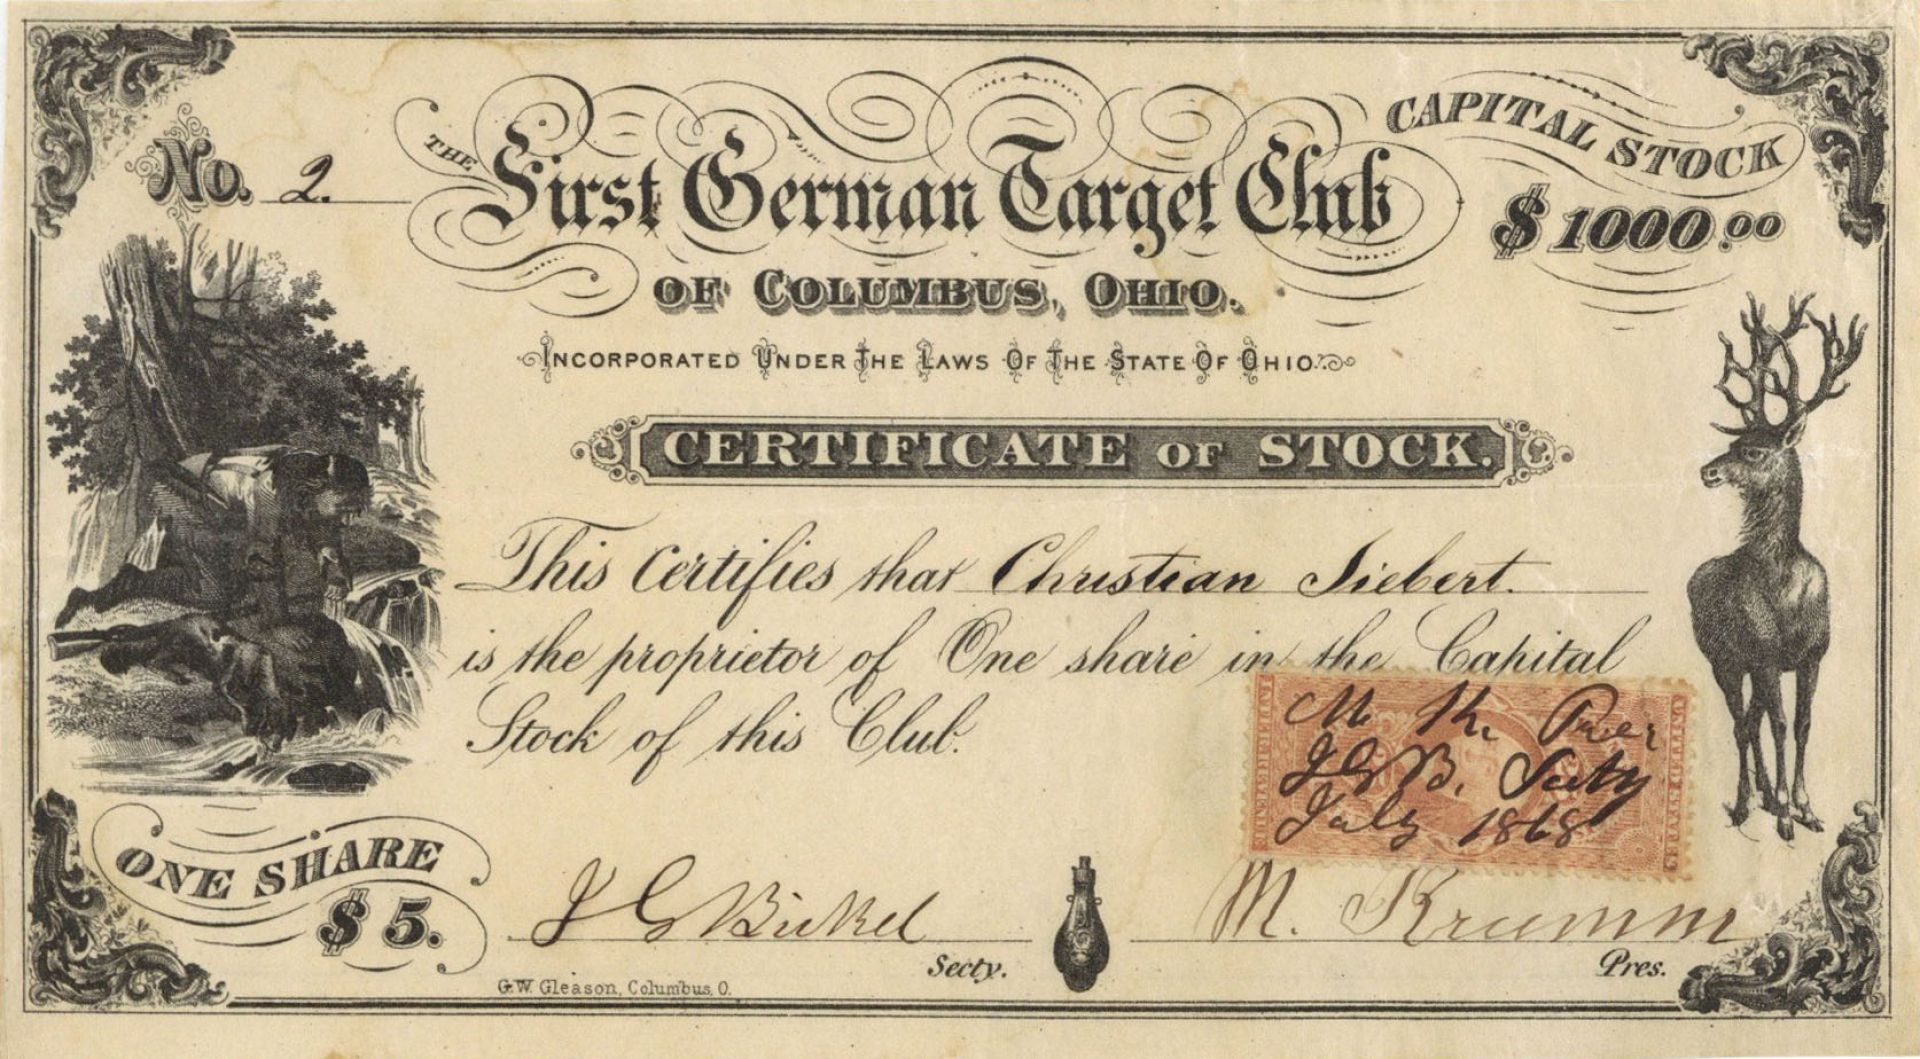 No. 2.
THE First German Target Club
OF COLUMBUS, OHIO.
CAPITAL STOCK
$1000.00
INCORPORATED UNDER THE LAWS OF THE STATE OF OHIO.
CERTIFICATE OF STOCK.
This Certifies that Christian Siebert.
is the proprietor of One share in the Capital
Stock of this Club.
UNITED STATES
M. K. Pres
J G B. Secty
July 1868
ONE SHARE
$5.
J G Bickel
Secty.
M. Krumm
Pres.
G.W. Gleason, Columbus, O.